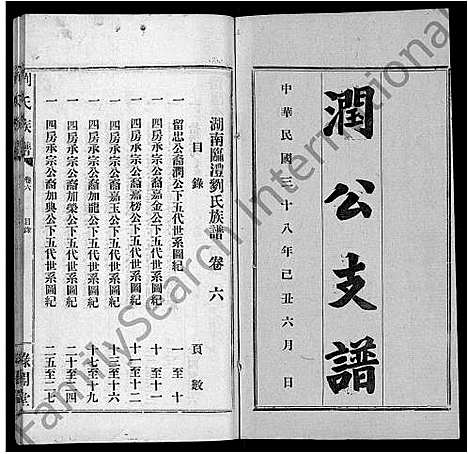 潤公支譜
中華民國三十八年己丑六月 日
湖南臨澧劉氏族譜 卷六
目錄 頁數
一 留忠公裔潤公下五代世系圖紀 一至十
一 四房承宗公裔嘉金公下五代世系圖紀 十至十一
一 四房承宗公裔嘉榜公下五代世系圖紀 十一至十二
一 四房承宗公裔嘉玉公下五代世系圖紀 十三至十六
一 四房承宗公裔加龍公下五代世系圖紀 十七至十九
一 四房承宗公裔加榮公下五代世系圖紀 二十至二四
一 四房承宗公裔加興公下五代世系圖紀 二五至二七
劉氏族譜
卷六 目錄
FamilySearch International